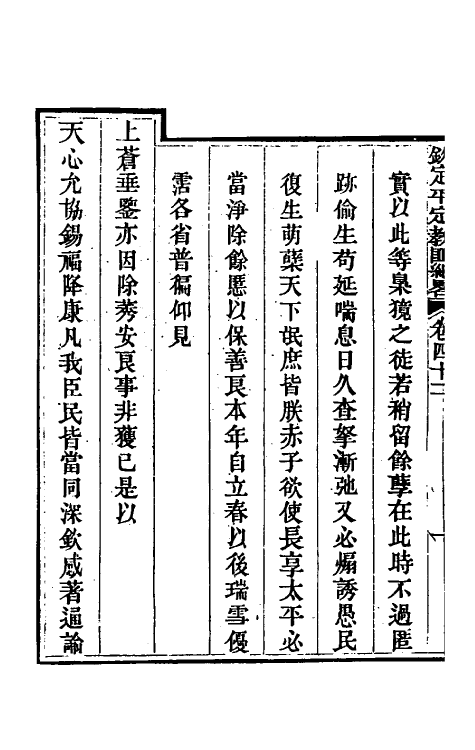 欽定平定教匪紀略 卷四十二
實以此等梟獍之徒若稍留餘孽在此時不過匿
跡偷生苟延喘息日久查拏漸弛又必煽誘愚民
復生萌蘖天下氓庶皆朕赤子欲使長享太平必
當淨除餘慝以保善良本年自立春以後瑞雪優
霑各省普徧仰見
上蒼垂鑒亦因除莠安良事非獲已是以
天心允協錫福降康凡我臣民皆當同深欽感著通諭